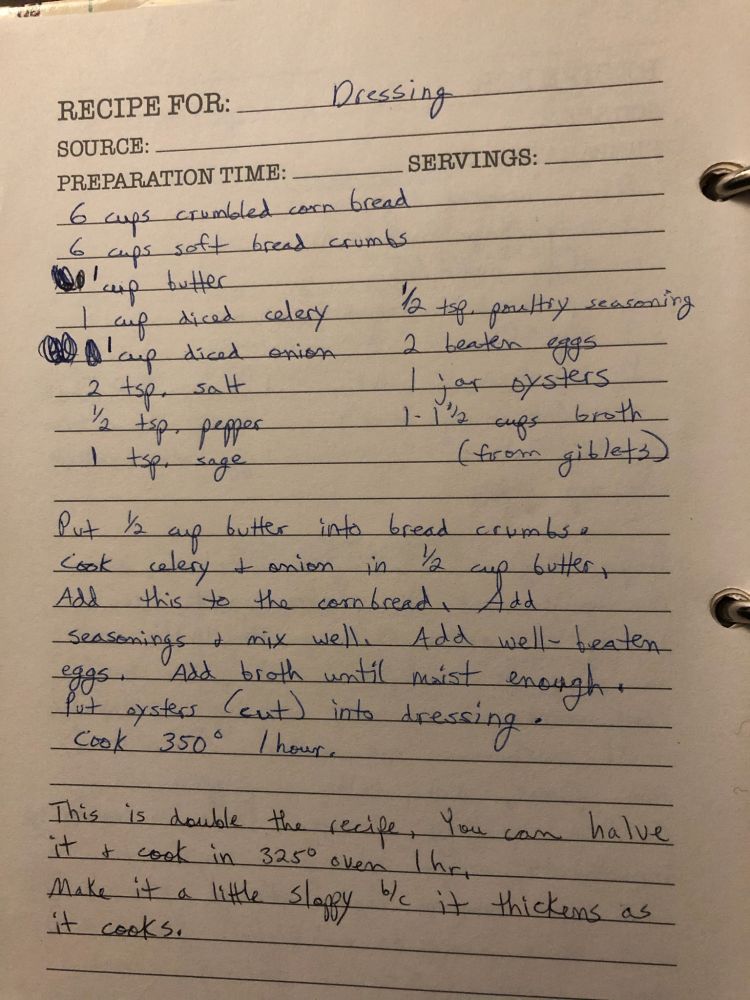 RECIPE FOR: Dressing
SOURCE:
PREPARATION TIME: SERVINGS:
6 cups crumbled corn bread
6 cups soft bread crumbs
1 cup butter
1 cup diced celery
1 cup diced onion
2 tsp. salt
1/2 tsp. pepper
1 tsp. sage
1/2 tsp. poultry seasoning
2 beaten eggs
1 jar oysters
1 - 1 1/2 cups broth
(from giblets)
Put 1/2 cup butter into bread crumbs.
Cook celery + onion in 1/2 cup butter.
Add this to the cornbread. Add
seasonings + mix well. Add well-beaten
eggs. Add broth until moist enough.
Put oysters (cut) into dressing.
Cook 350° 1 hour.
This is double the recipe. You can halve
it + cook in 325° oven 1 hr.
Make it a little sloppy b/c it thickens as
it cooks.